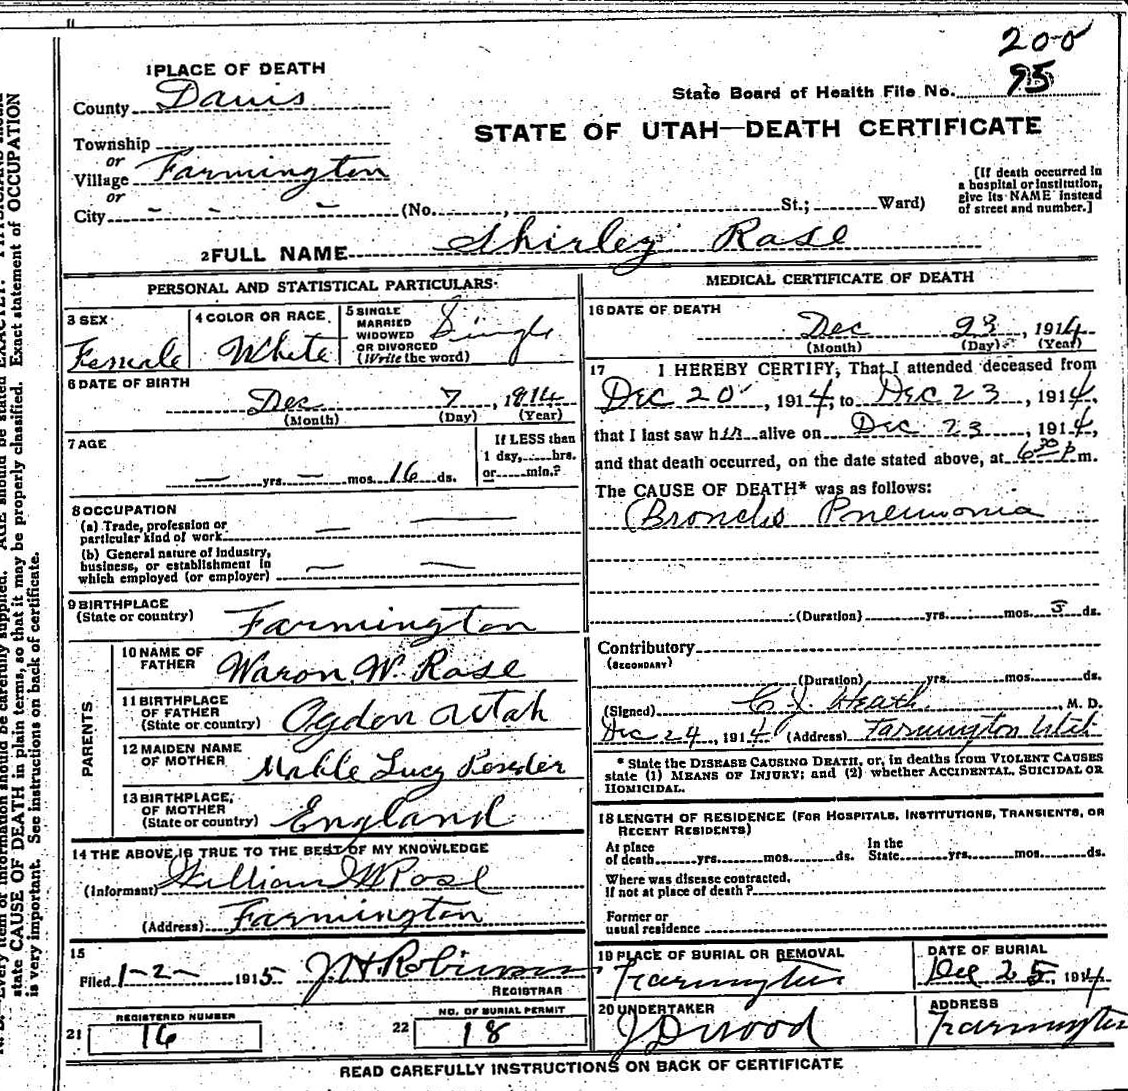 200
95
1 PLACE OF DEATH
County Davis
State Board of Health File No.
STATE OF UTAH—DEATH CERTIFICATE
Township
or
Village Farmington
or
City - - - (No. , St.; Ward)
[If death occurred in
a hospital or institution,
give its NAME instead
of street and number.]
2 FULL NAME Shirley Rose
PERSONAL AND STATISTICAL PARTICULARS
3 SEX
Female
4 COLOR OR RACE
White
5 SINGLE
MARRIED
WIDOWED
OR DIVORCED
(Write the word)
Single
6 DATE OF BIRTH
Dec 7, 1914
(Month) (Day) (Year)
7 AGE
— yrs. — mos. 16 ds.
If LESS than
1 day, hrs.
or min.?
8 OCCUPATION
(a) Trade, profession or
particular kind of work — —
(b) General nature of industry,
business, or establishment in
which employed (or employer) — —
9 BIRTHPLACE
(State or country) Farmington
PARENTS
10 NAME OF
FATHER
W. Rose
11 BIRTHPLACE
OF FATHER
(State or country)
Ogden Utah
12 MAIDEN NAME
OF MOTHER
Mable Lucy
13 BIRTHPLACE
OF MOTHER
(State or country)
England
14 THE ABOVE IS TRUE TO THE BEST OF MY KNOWLEDGE
(Informant) William W Rose
(Address) Farmington
15
Filed 1-2- 1915 J H Robinson
REGISTRAR
REGISTERED NUMBER
21 16
NO. OF BURIAL PERMIT
22 18
MEDICAL CERTIFICATE OF DEATH
16 DATE OF DEATH
Dec 23, 1914
(Month) (Day) (Year)
17 I HEREBY CERTIFY, That I attended deceased from
Dec 20, 1914, to Dec 23, 1914,
that I last saw her alive on Dec 23, 1914,
and that death occurred, on the date stated above, at 6 30 P m.
The CAUSE OF DEATH* was as follows:
Broncho Pneumonia
(Duration) yrs. mos. 3 ds.
Contributory
(SECONDARY)
(Duration) yrs. mos. ds.
(Signed) C J Heath, M. D.
Dec 24, 1914 (Address) Farmington Utah
* State the DISEASE CAUSING DEATH, or, in deaths from VIOLENT CAUSES
state (1) MEANS OF INJURY; and (2) whether ACCIDENTAL, SUICIDAL OR
HOMICIDAL.
18 LENGTH OF RESIDENCE (FOR HOSPITALS, INSTITUTIONS, TRANSIENTS, OR
RECENT RESIDENTS)
At place
of death yrs. mos. ds.
In the
State yrs. mos. ds.
Where was disease contracted,
if not at place of death?
Former or
usual residence
19 PLACE OF BURIAL OR REMOVAL
Farmington
DATE OF BURIAL
Dec 25, 1914
20 UNDERTAKER
J D Wood
ADDRESS
Farmington
READ CAREFULLY INSTRUCTIONS ON BACK OF CERTIFICATE
Every item of information should be carefully supplied. AGE should be stated EXACTLY.
state CAUSE OF DEATH in plain terms, so that it may be properly classified. Exact statement of OCCUPATION
is very important. See instructions on back of certificate.